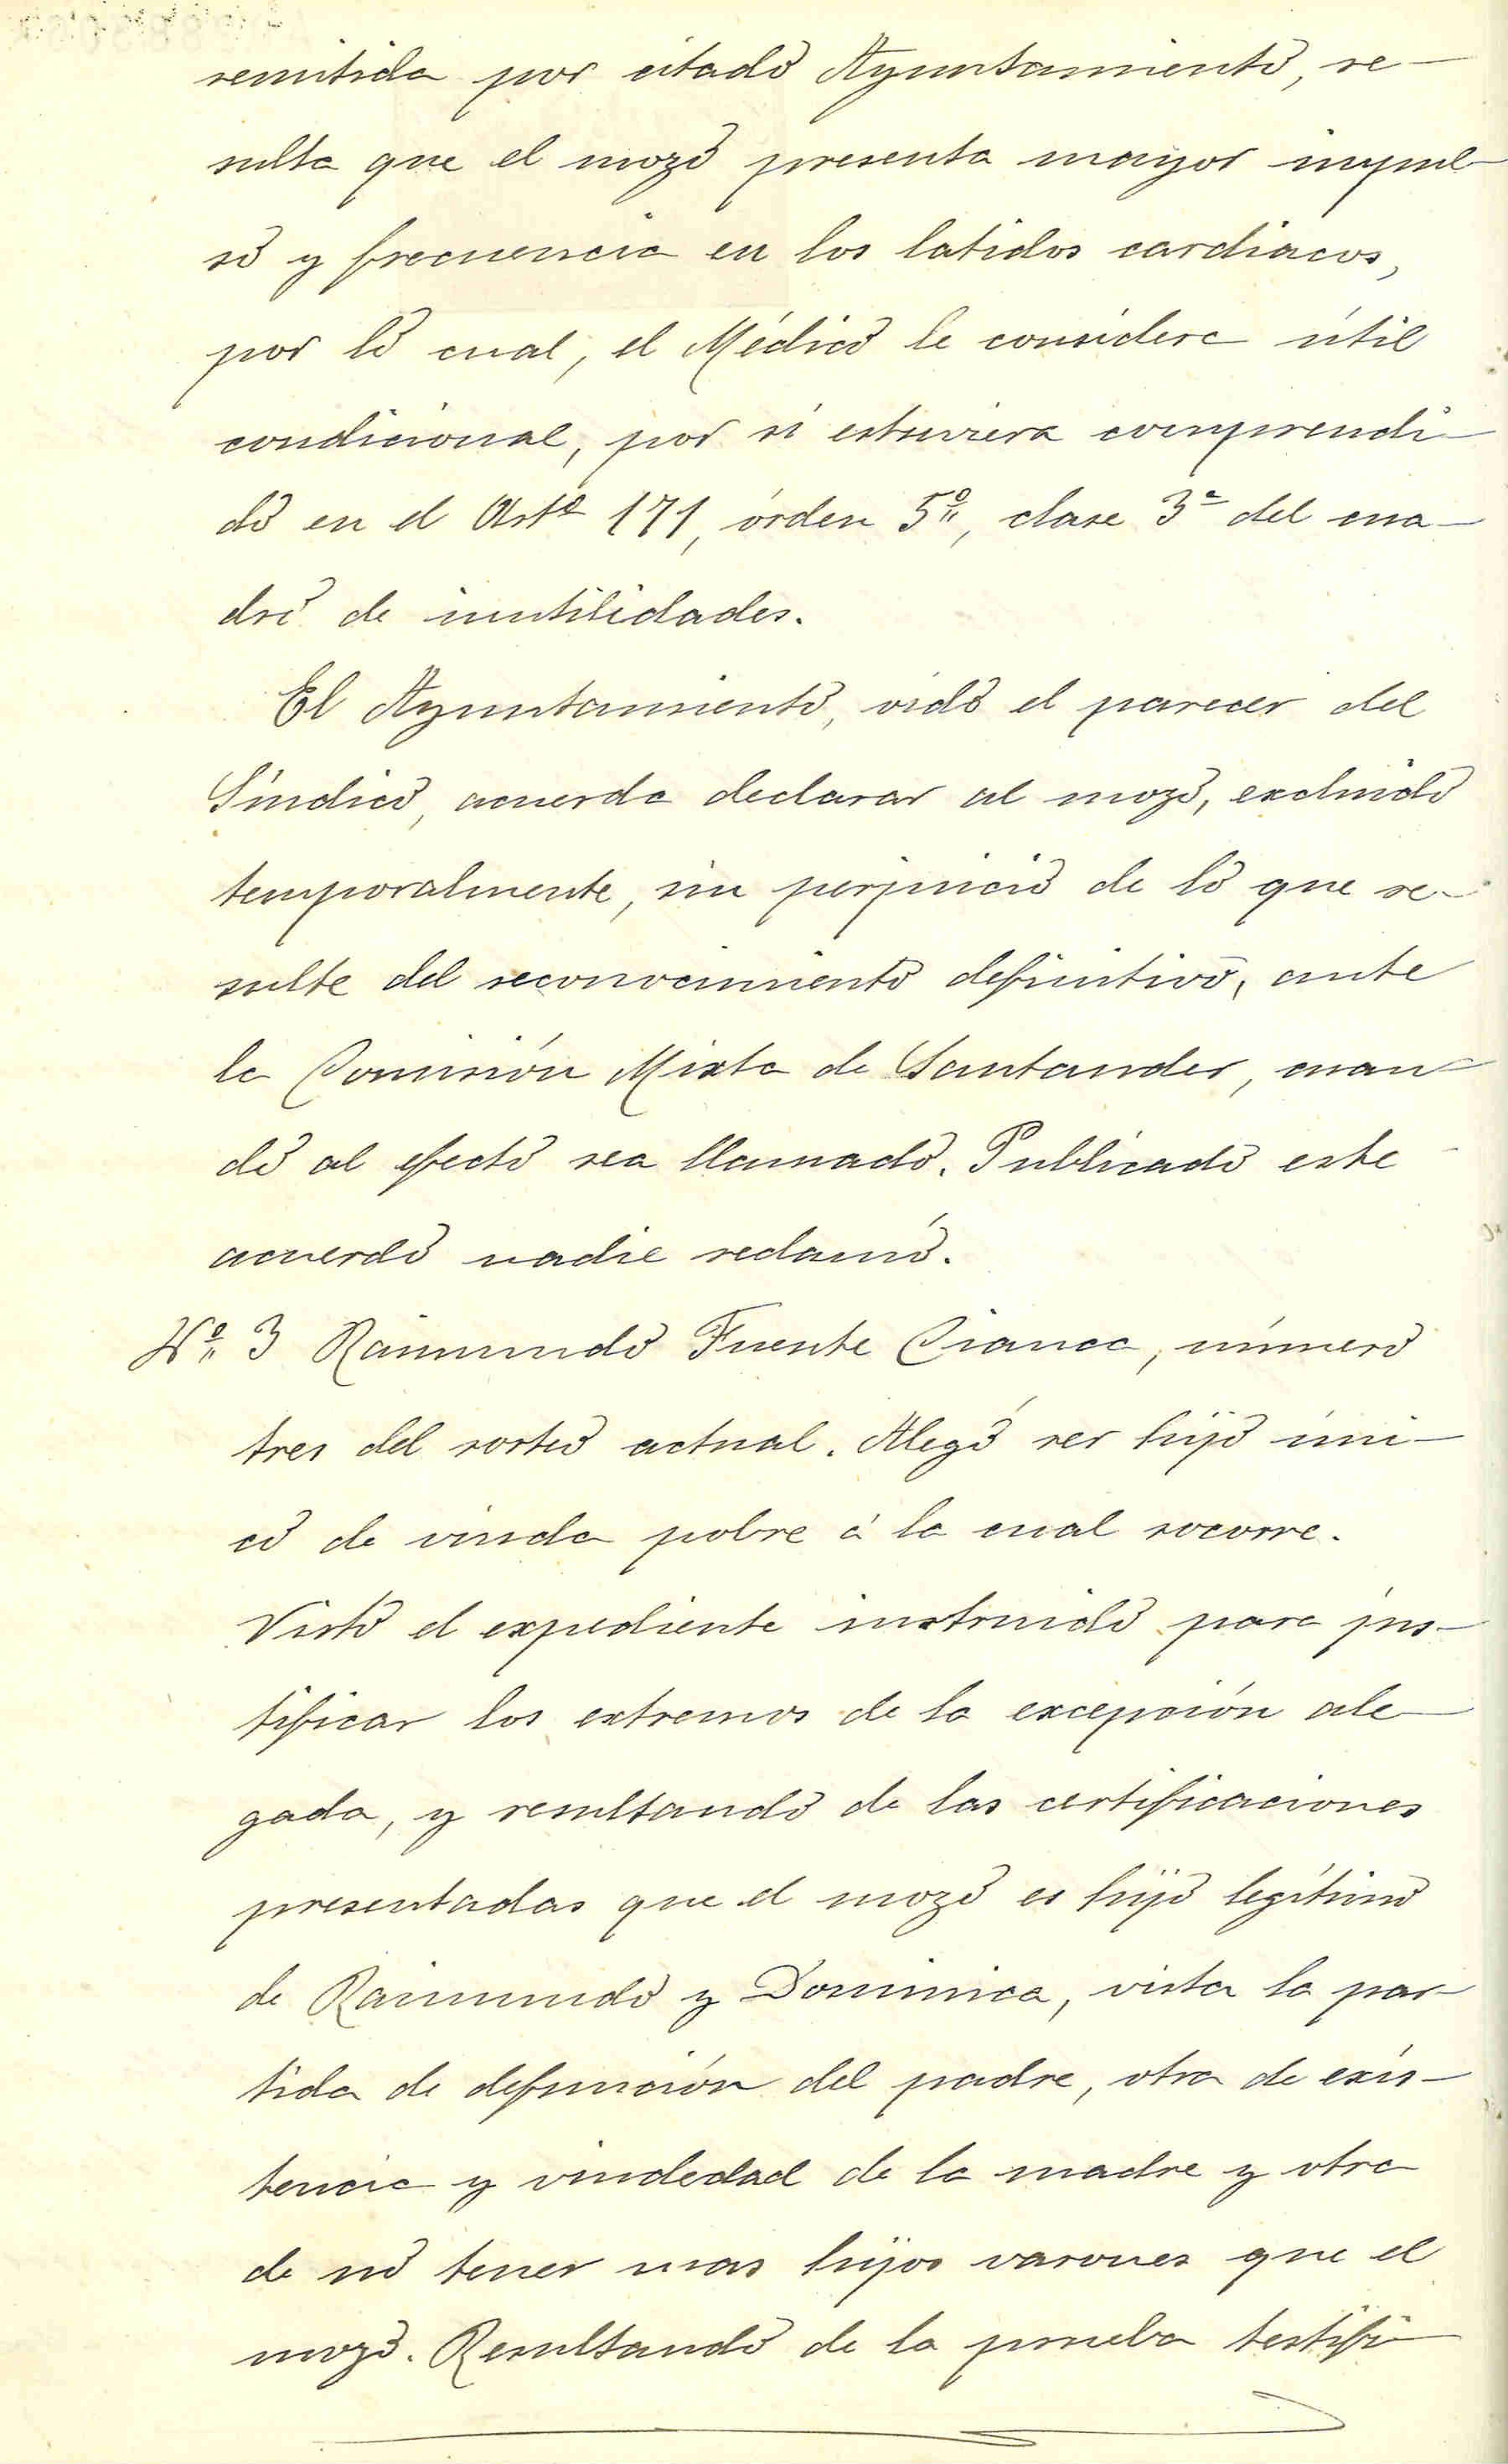 remitida por citado Ayuntamiento, re-
sulta que el mozo presenta mayor impul-
so y frecuencia en los latidos cardiacos,
por lo cual, el Médico le considera útil
condicional, por si estuviera comprendi-
do en el Artº 171, órden 5º, clase 3ª del cua-
dro de inutilidades.
El Ayuntamiento, oido el parecer del
Síndico, acuerda declarar al mozo, excluido
temporalmente, sin perjuicio de lo que re-
sulte del reconocimiento definitivo, ante
la Comisión Mixta de Santander, cuan-
do al efecto sea llamado. Publicado este
acuerdo nadie reclamó.
Nº 3 Raimundo Fuente Cianca, número
tres del sorteo actual. Alegó ser hijo úni-
co de viuda pobre á la cual socorre.
Visto el expediente instruido para jus-
tificar los extremos de la excepción ale-
gada, y resultando de las certificaciones
presentadas que el mozo es hijo legítimo
de Raimundo y Dominica, vista la par-
tida de defunción del padre, otra de exis-
tencia y viudedad de la madre y otra
de no tener mas hijos varones que el
mozo. Resultando de la prueba testifi-